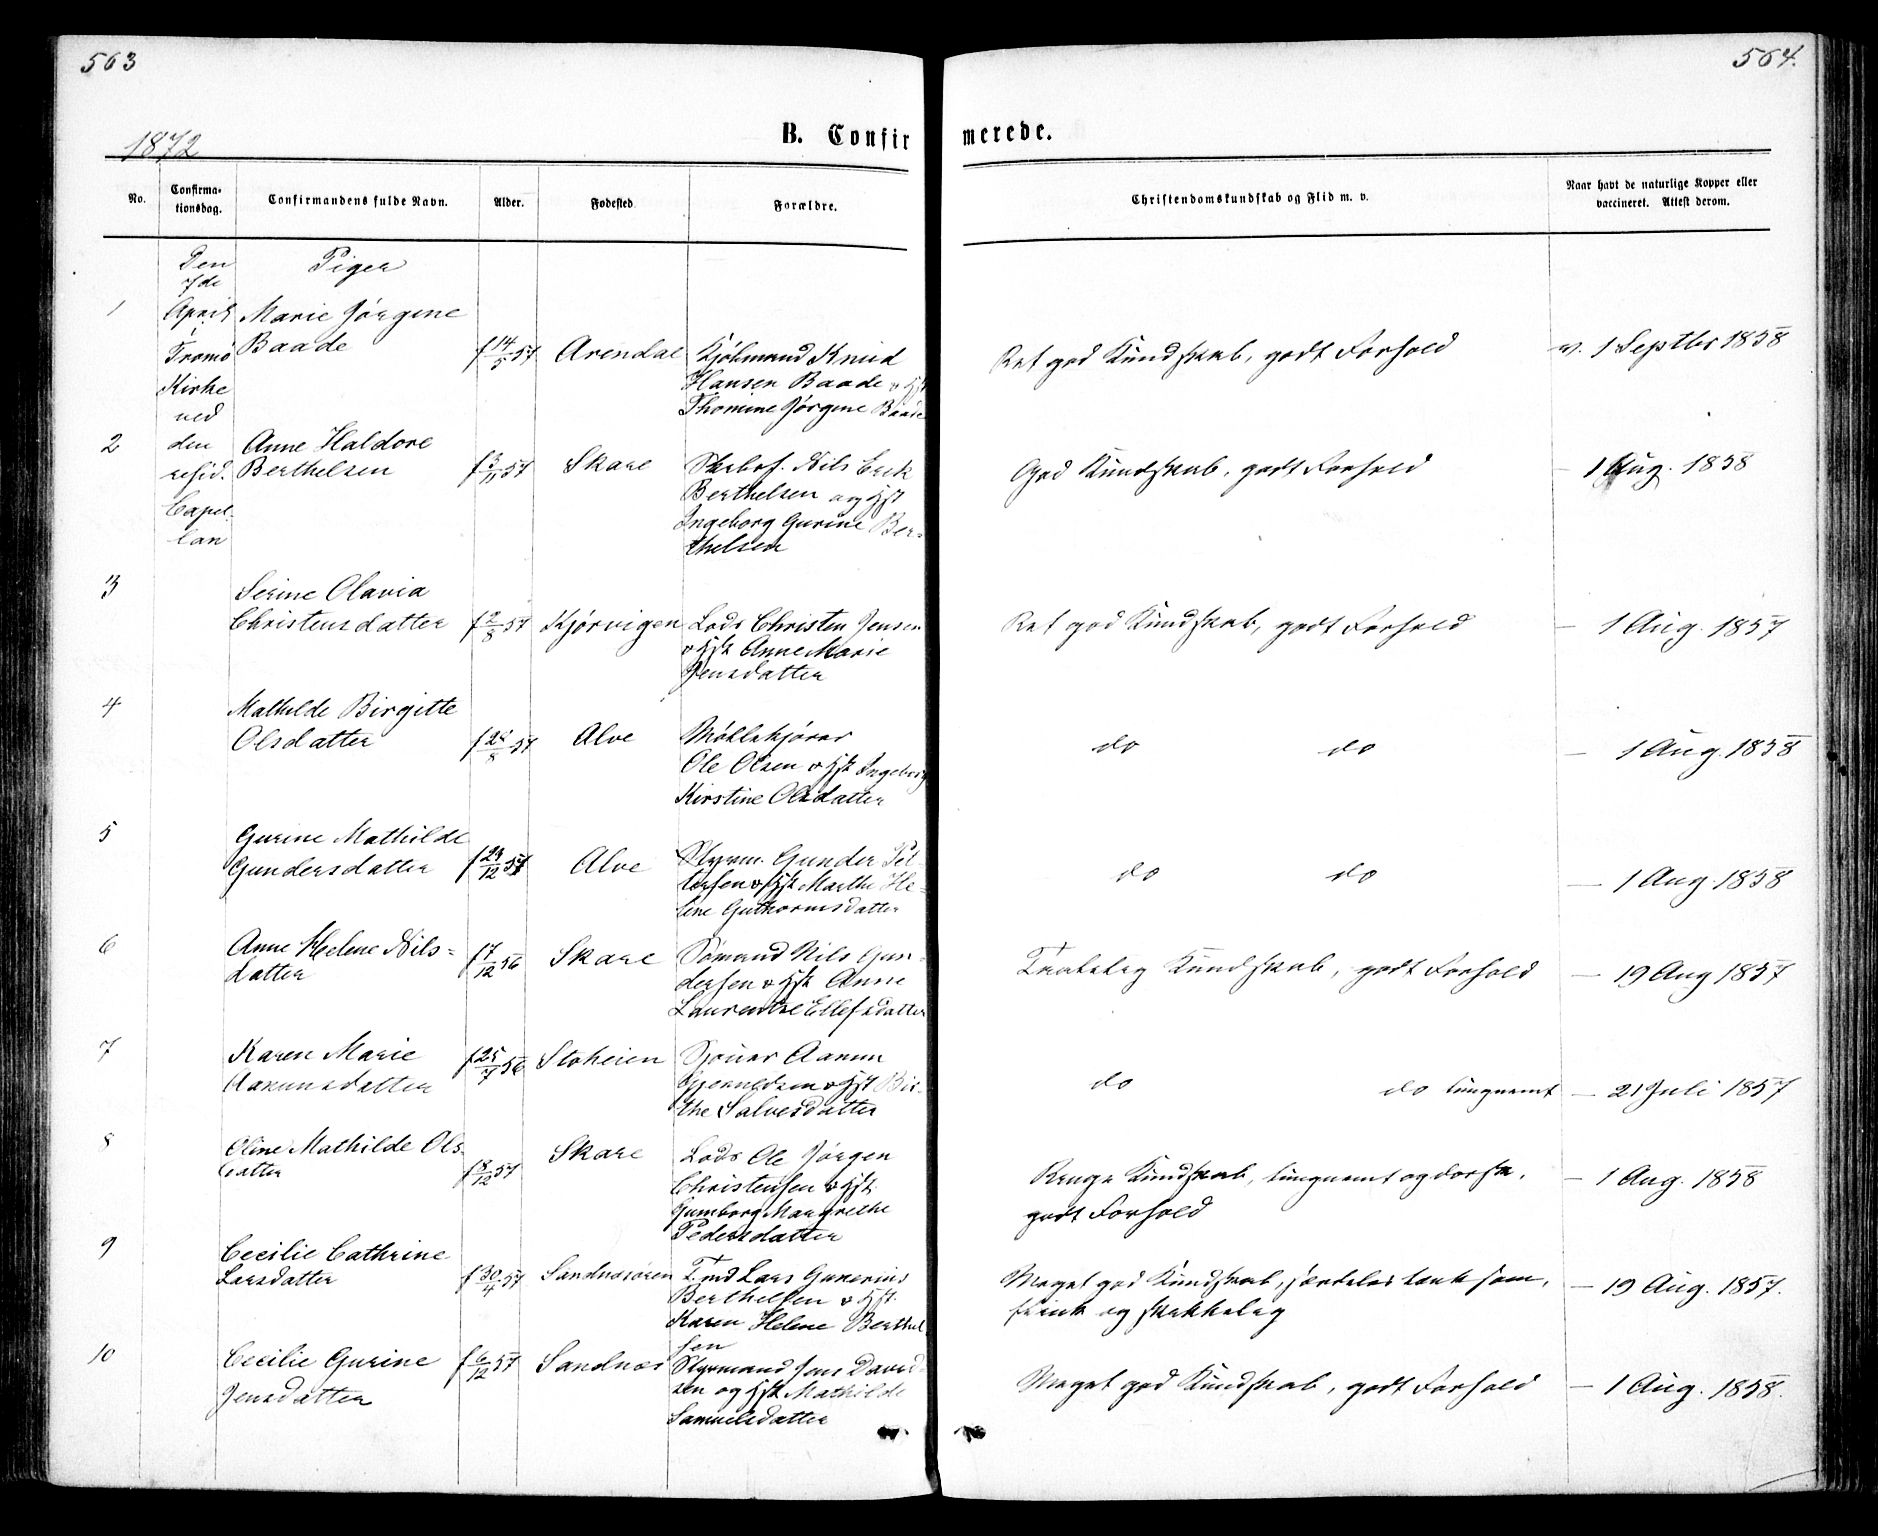 563
564.
1872
B. Confir
merede.
No.
Confirma-
tionsdag.
Confirmandens fulde Navn.
Alder.
Fødested.
Forældre.
Christendomskundskab og Flid m. v.
Naar havt de naturlige Kopper eller
vaccineret. Attest derom.
Den
7de
April
i
Tromø
Kirke
ved
den
resid.
Capel
lan
Piger
1
Marie Jørgine
Baade
f 14/5 57
Arendal
Kjøbmand Knud
Hansen Baade & Hst
Thomine Jørgine Baade
Ret god Kundskab, godt Forhold
v. 1 Septbr 1858
2
Anne Haldore
Berthelsen
f 3/11 57
Skare
Skibsf. Nils Erik
Berthelsen og Hst
Ingeborg Gurine Ber-
thelsen
God Kundskab, godt Forhold
— 1 Aug. 1858
3
Serine Olavia
Christensdatter
f 2/8 57
Kjørvigen
Lods Christen Jensen
& Hst Anne Marie
Jensdatter
Ret god Kundskab, godt Forhold
— 1 Aug. 1857
4
Mathilde Birgitte
Olsdatter
Alve
Møllekjører
Ole Olsen & Hst Ingeborg
Kirstine Olsdatter
do do
— 1 Aug. 1858
5
Gurine Mathilde
Gundersdatter
Alve
Styrm. Gunder Pet-
tersen & Hst Marthe He-
line Guthormsdatter
do do
— 1 Aug. 1858
6
Anne Helene Nils-
datter
f 7/12 56
Skare
Sømand Nils Gun-
dersen & Hst Anne
Laurentse Ellefsdatter
Taalelig Kundskab, godt Forhold
— 19 Aug 1857
7
Karen Marie
Aanunsdatter
f 25/7 56
Stoheien
Aanun
& Hst Bir-
the Salvesdatter
do do tungnemt
— 21 Juli 1857
8
Oline Mathilde Ols
datter
f 8/12 57
Skare
Lods Ole Jørgen
Christensen & Hst
Gunborg Margrethe
Pedersdatter
Ringe Kundskab, tungnemt og dorsk,
godt Forhold
— 1 Aug. 1858
9
Cecilie Cathrine
Larsdatter
f 30/4 57
Sandnæsøren
Lars Gunerius
Berthelsen & Hst
Karen Helene Berthel
sen
Meget god Kundskab, særdeles tænksom,
flink og skikkelig
— 19 Aug. 1857.
10
Cecilie Gurine
Jensdatter
f 6/12 57
Sandnæs
Styrmand Jens David-
sen og Hst Mathilde
Samuelsdatter
Meget god Kundskab, godt Forhold
— 1 Aug. 1858.